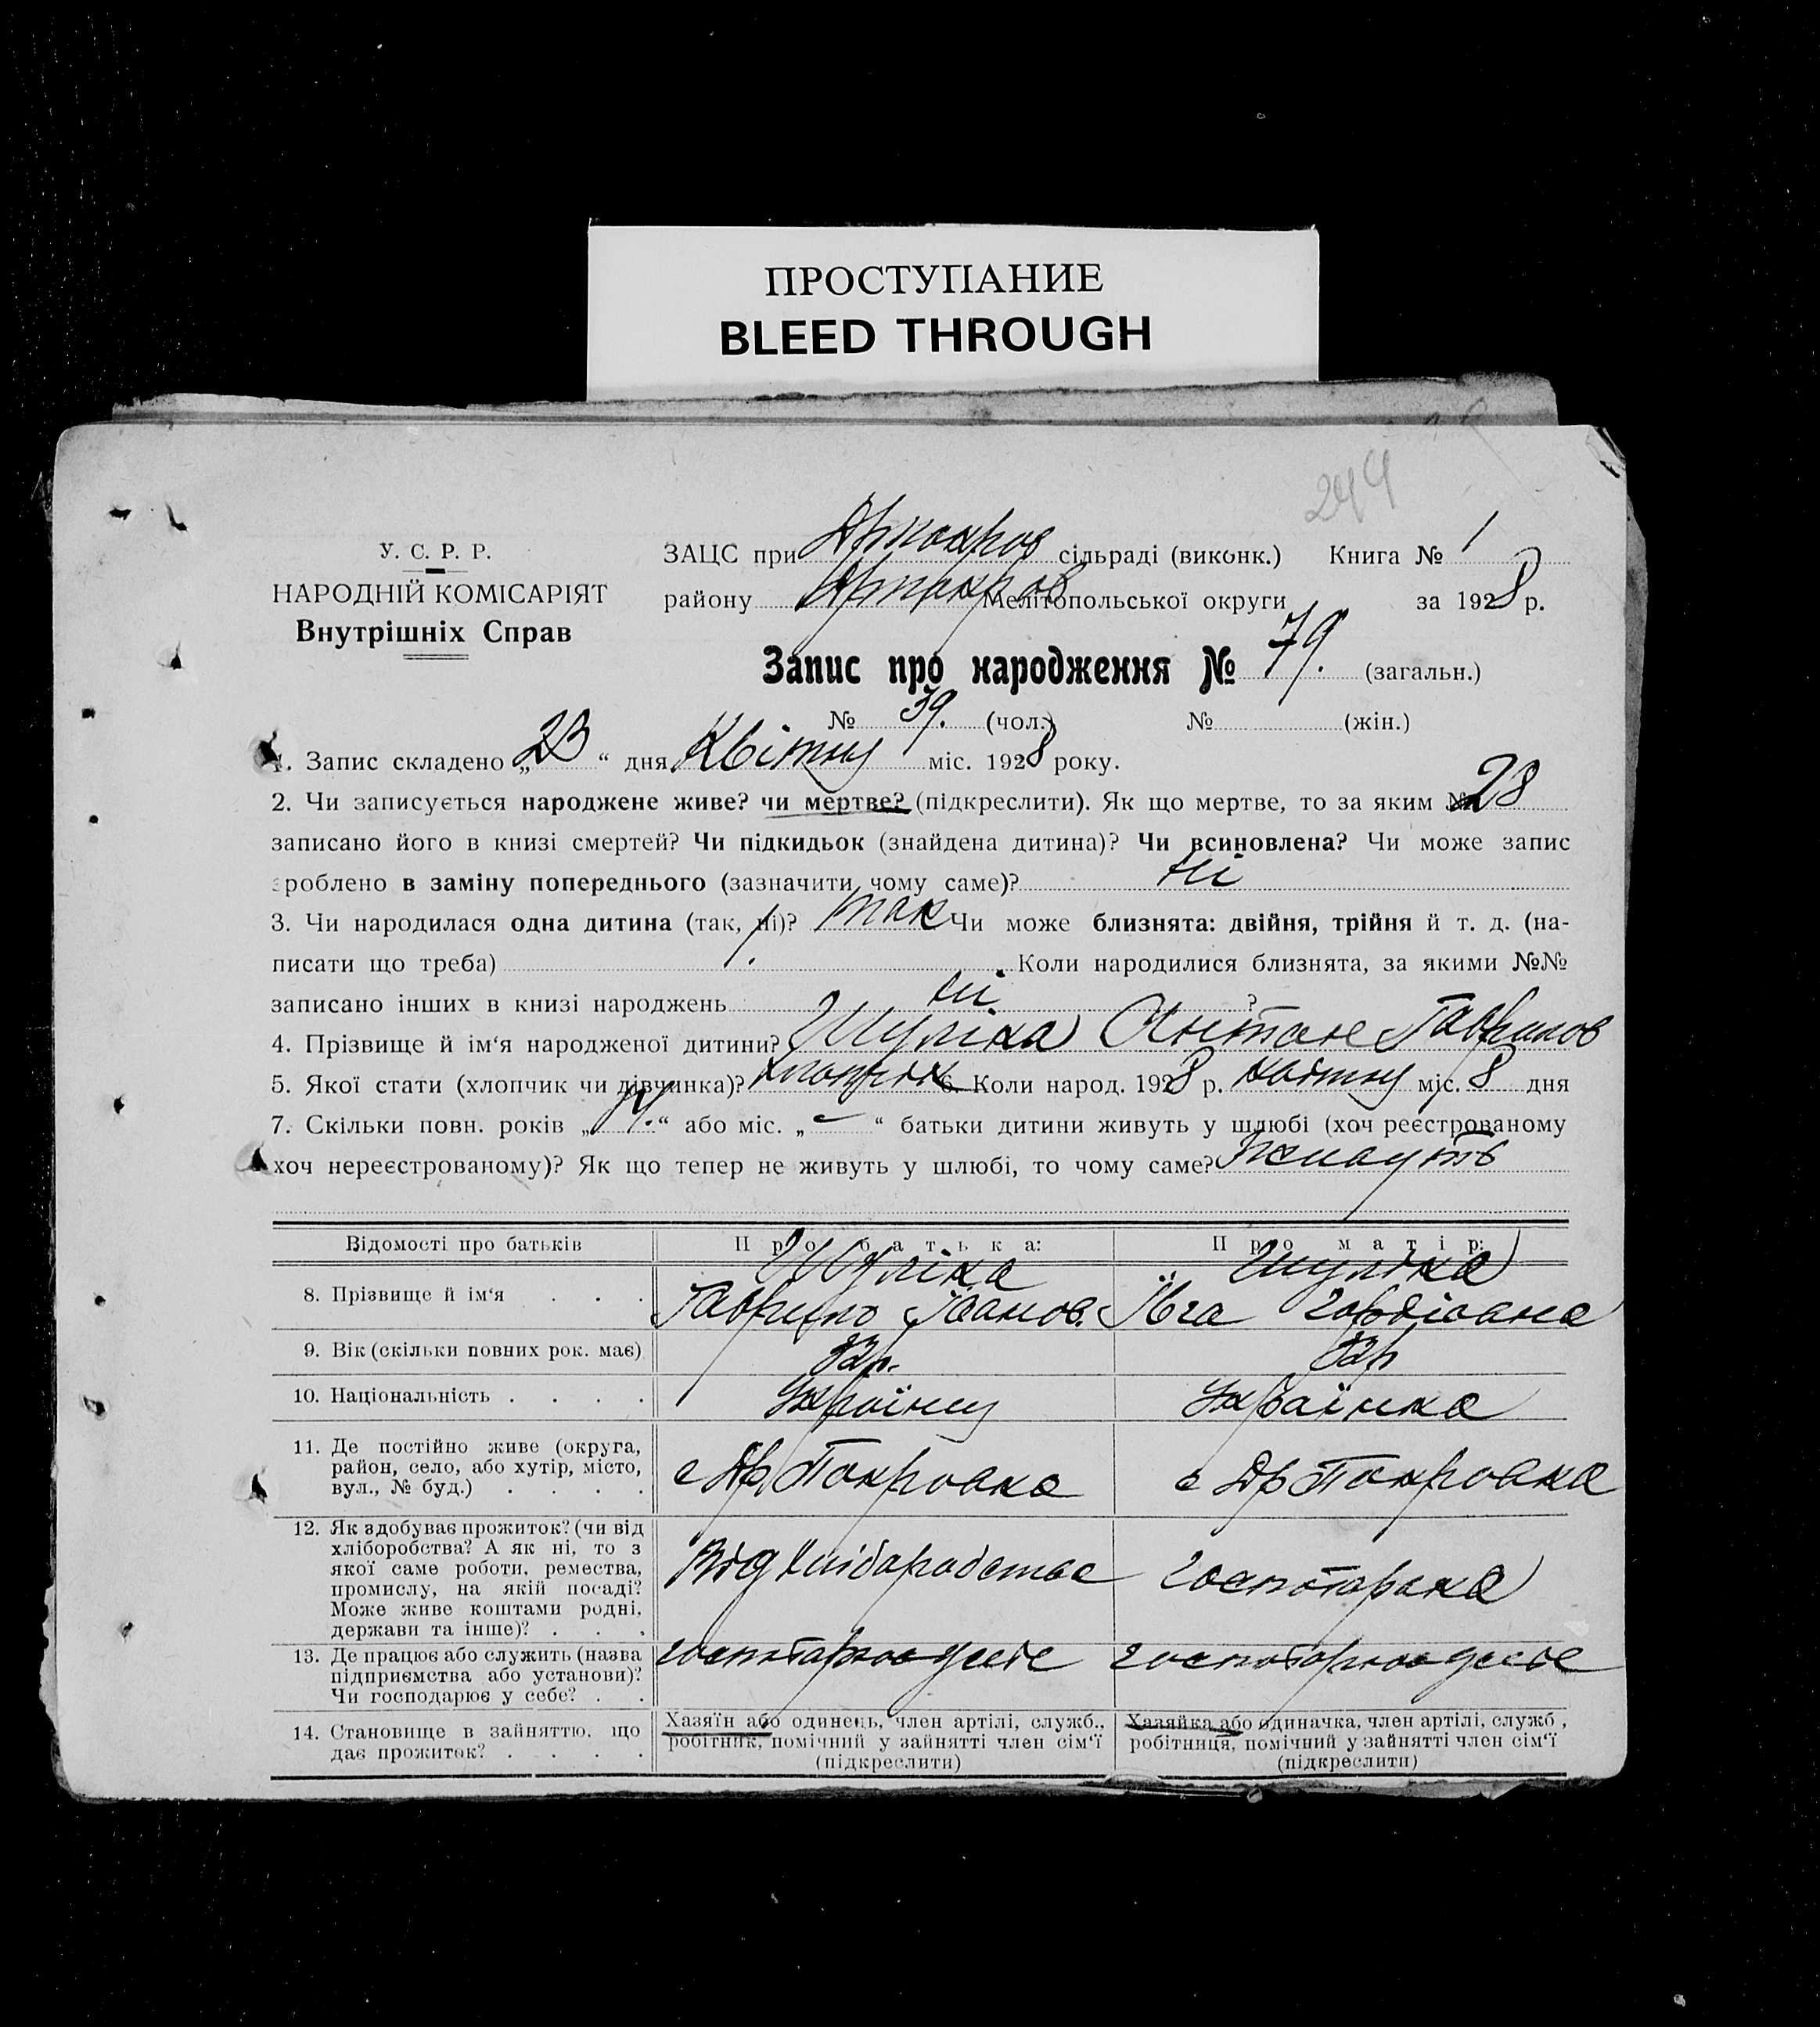 ПРОСТУПАНИЕ
BLEED THROUGH
244
У. С. Р. Р.
НАРОДНІЙ КОМІСАРІЯТ
Внутрішніх Справ
ЗАЦС при Дрпокров сільраді (виконк.) Книга № 1
району Дрпокров Мелітопольської округи за 1928 р.
Запис про народження № 79. (загальн.)
№ 39. (чол.) № (жін.)
1. Запис складено „23“ дня Квітну міс. 1928 року.
2. Чи записується народжене живе? чи мертве? (підкреслити). Як що мертве, то за яким № 28
записано його в книзі смертей? Чи підкидьок (знайдена дитина)? Чи всиновлена? Чи може запис
зроблено в заміну попереднього (зазначити, чому саме)? ні
3. Чи народилася одна дитина (так, ні)? так Чи може близнята: двійня, трійня й т. д. (на-
писати що треба) Коли народилися близнята, за якими №№
записано інших в книзі народжень ні ?
4. Прізвище й ім‘я народженої дитини? Шуліка Антон Гаврилов
5. Якої стати (хлопчик чи дівчинка)? хлопчик 6. Коли народ. 1928 р. квітну міс. 8 дня
7. Скільки повн. років „14.“ або міс. „-“ батьки дитини живуть у шлюбі (хоч реєстрованому
хоч нереєстрованому)? Як що тепер не живуть у шлюбі, то чому саме? живуть
Відомості про батьків Про батька: Про матір:
8. Прізвище й ім‘я . . . Шуліка Гаврило Іванов. Шуліка Ївга Гордіовна
9. Вік (скільки повних рок. має) 32р. 32р
10. Національність . . . . Українец Українка
11. Де постійно живе (округа,
район, село, або хутір, місто,
вул., № буд.) . . . . с Др. Покровка с Др Покровка
12. Як здобуває прожиток? (чи від
хліборобства? А як ні, то з
якої саме роботи, ремества,
промислу, на якій посаді?
Може живе коштами родні,
держави та інше)? . . . Від хліборобства господарка
13. Де працює або служить (назва
підприємства або установи)?
Чи господарює у себе? . . господарює у себе господарює у себе
14. Становище в зайняттю, що
дає прожиток? . . . .
Хазяїн або одинець, член артілі, служб.,
робітник, помічний у зайнятті член сім‘ї
(підкреслити)
Хазяйка або одиначка, член артілі, служб,
робітниця, помічний у зайнятті член сім‘ї
(підкреслити)